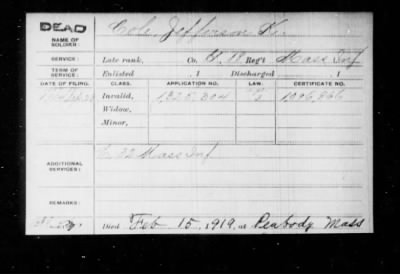 DEAD
NAME OF SOLDIER: Cole, Jefferson K.
SERVICE: Late rank, Co. H, 18 Reg't Mass Inf
TERM OF SERVICE: Enlisted , 1 Discharged , 1
DATE OF FILING. CLASS. APPLICATION NO. LAW. CERTIFICATE NO.
Invalid, 1,325,304 1,096,866
Widow,
Minor,
ADDITIONAL SERVICES: 32 Mass Inf
REMARKS:
Died Feb 15, 1919, at Peabody Mass